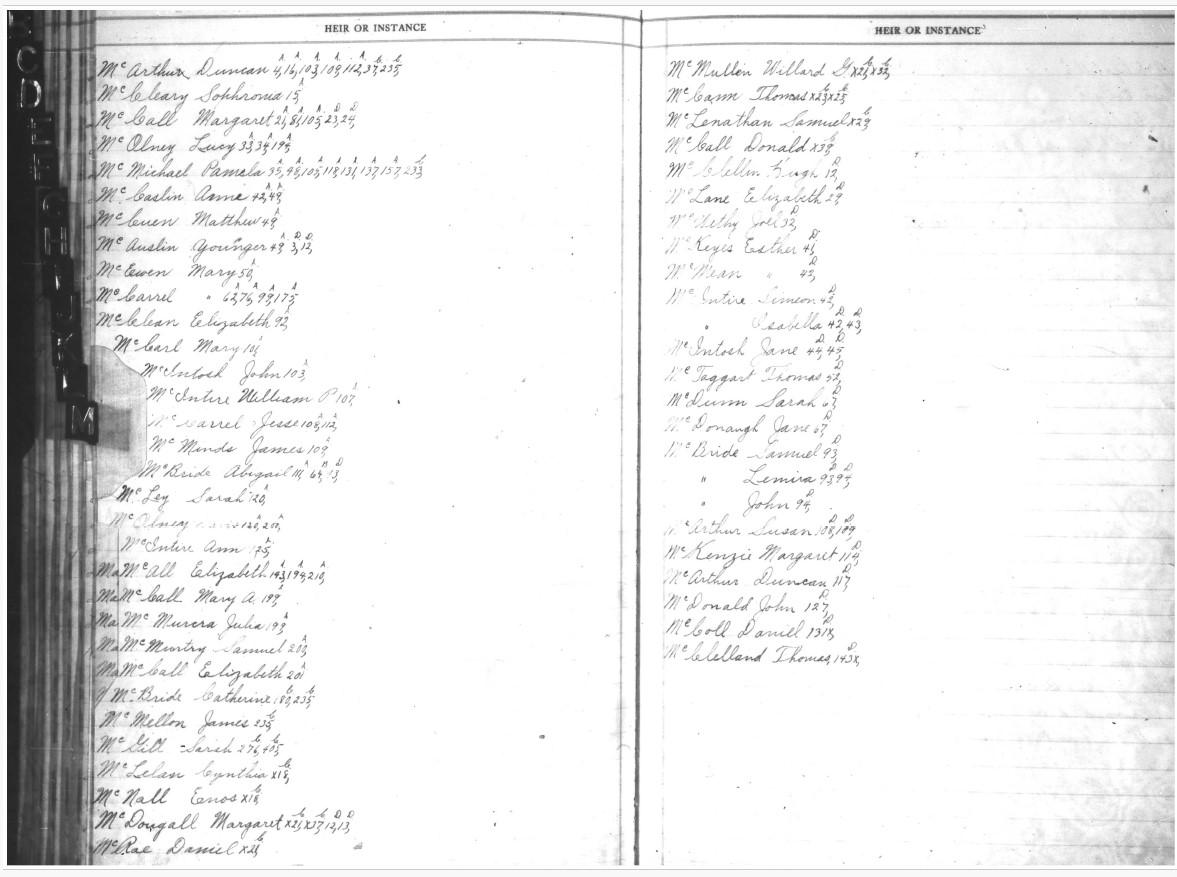 HEIR OR INSTANCE
Mc Arthur Duncan 4, 16, 103, 109, 112, 37, 235,
Mc Cleary Sophronia 15,
Mc Call Margaret 21, 81, 105, 23, 24,
Mc Olney Lucy 33, 34, 194,
Mc Michael Pamela 35, 98, 105, 118, 131, 137, 157, 233
Mc Caslin Anne 42, 49,
Mc Cuen Matthew 49,
Mc Auslin Younger 49, 3, 12,
Mc Ewen Mary 50,
Mc Carrel " 62, 76, 99, 175,
Mc Clean Elizabeth 92,
Mc Carl Mary
Mc Intosh John 103,
Mc Intire William P 107,
Mc Carrel Jesse 108, 112,
Mc Minds James 109,
Mc Bride Abigail 111, 64, 13,
Mc Ley Sarah 120,
Mc Olney 200,
Mc Intire Ann 175,
Mc All Elizabeth 193, 194, 210,
Mc Call Mary A. 199,
Mc Murcra Julia 199,
Mc Murtry Samuel 200,
Mc Call Elizabeth 201
Mc Bride Catherine 180, 235,
Mc Mellon James 235,
Mc Gill Sarah 276, 405,
Mc Lelan Cynthia x18,
Mc Nall Enos x18,
Mc Dougall Margaret x21, x37, 12, 13,
Mc Rae Daniel x21,
M
HEIR OR INSTANCE
Mc Mullen Willard G. x21, x32,
Mc Cann Thomas x23, x25,
Mc Lenathan Samuel x29,
Mc Call Donald x38,
Mc Clellin Hugh 12,
Mc Lane Elizabeth 29,
Mc Joel 32,
Mc Keyes Esther 41,
Mc Wean " 42,
Mc Intire Simeon 42,
" Isabella 42, 43,
Mc Intosh Jane 44, 45,
Mc Taggart Thomas 52,
Mc Dunn Sarah 67,
Mc Donaugh Jane 67,
Mc Bride Samuel 93,
" Lemira 93, 94,
" John 94,
Mc Arthur Susan 108, 109,
Mc Kenzie Margaret 114,
Mc Arthur Duncan 117,
Mc Donald John 127,
Mc Coll Daniel 131x,
Mc Clelland Thomas, 143x,